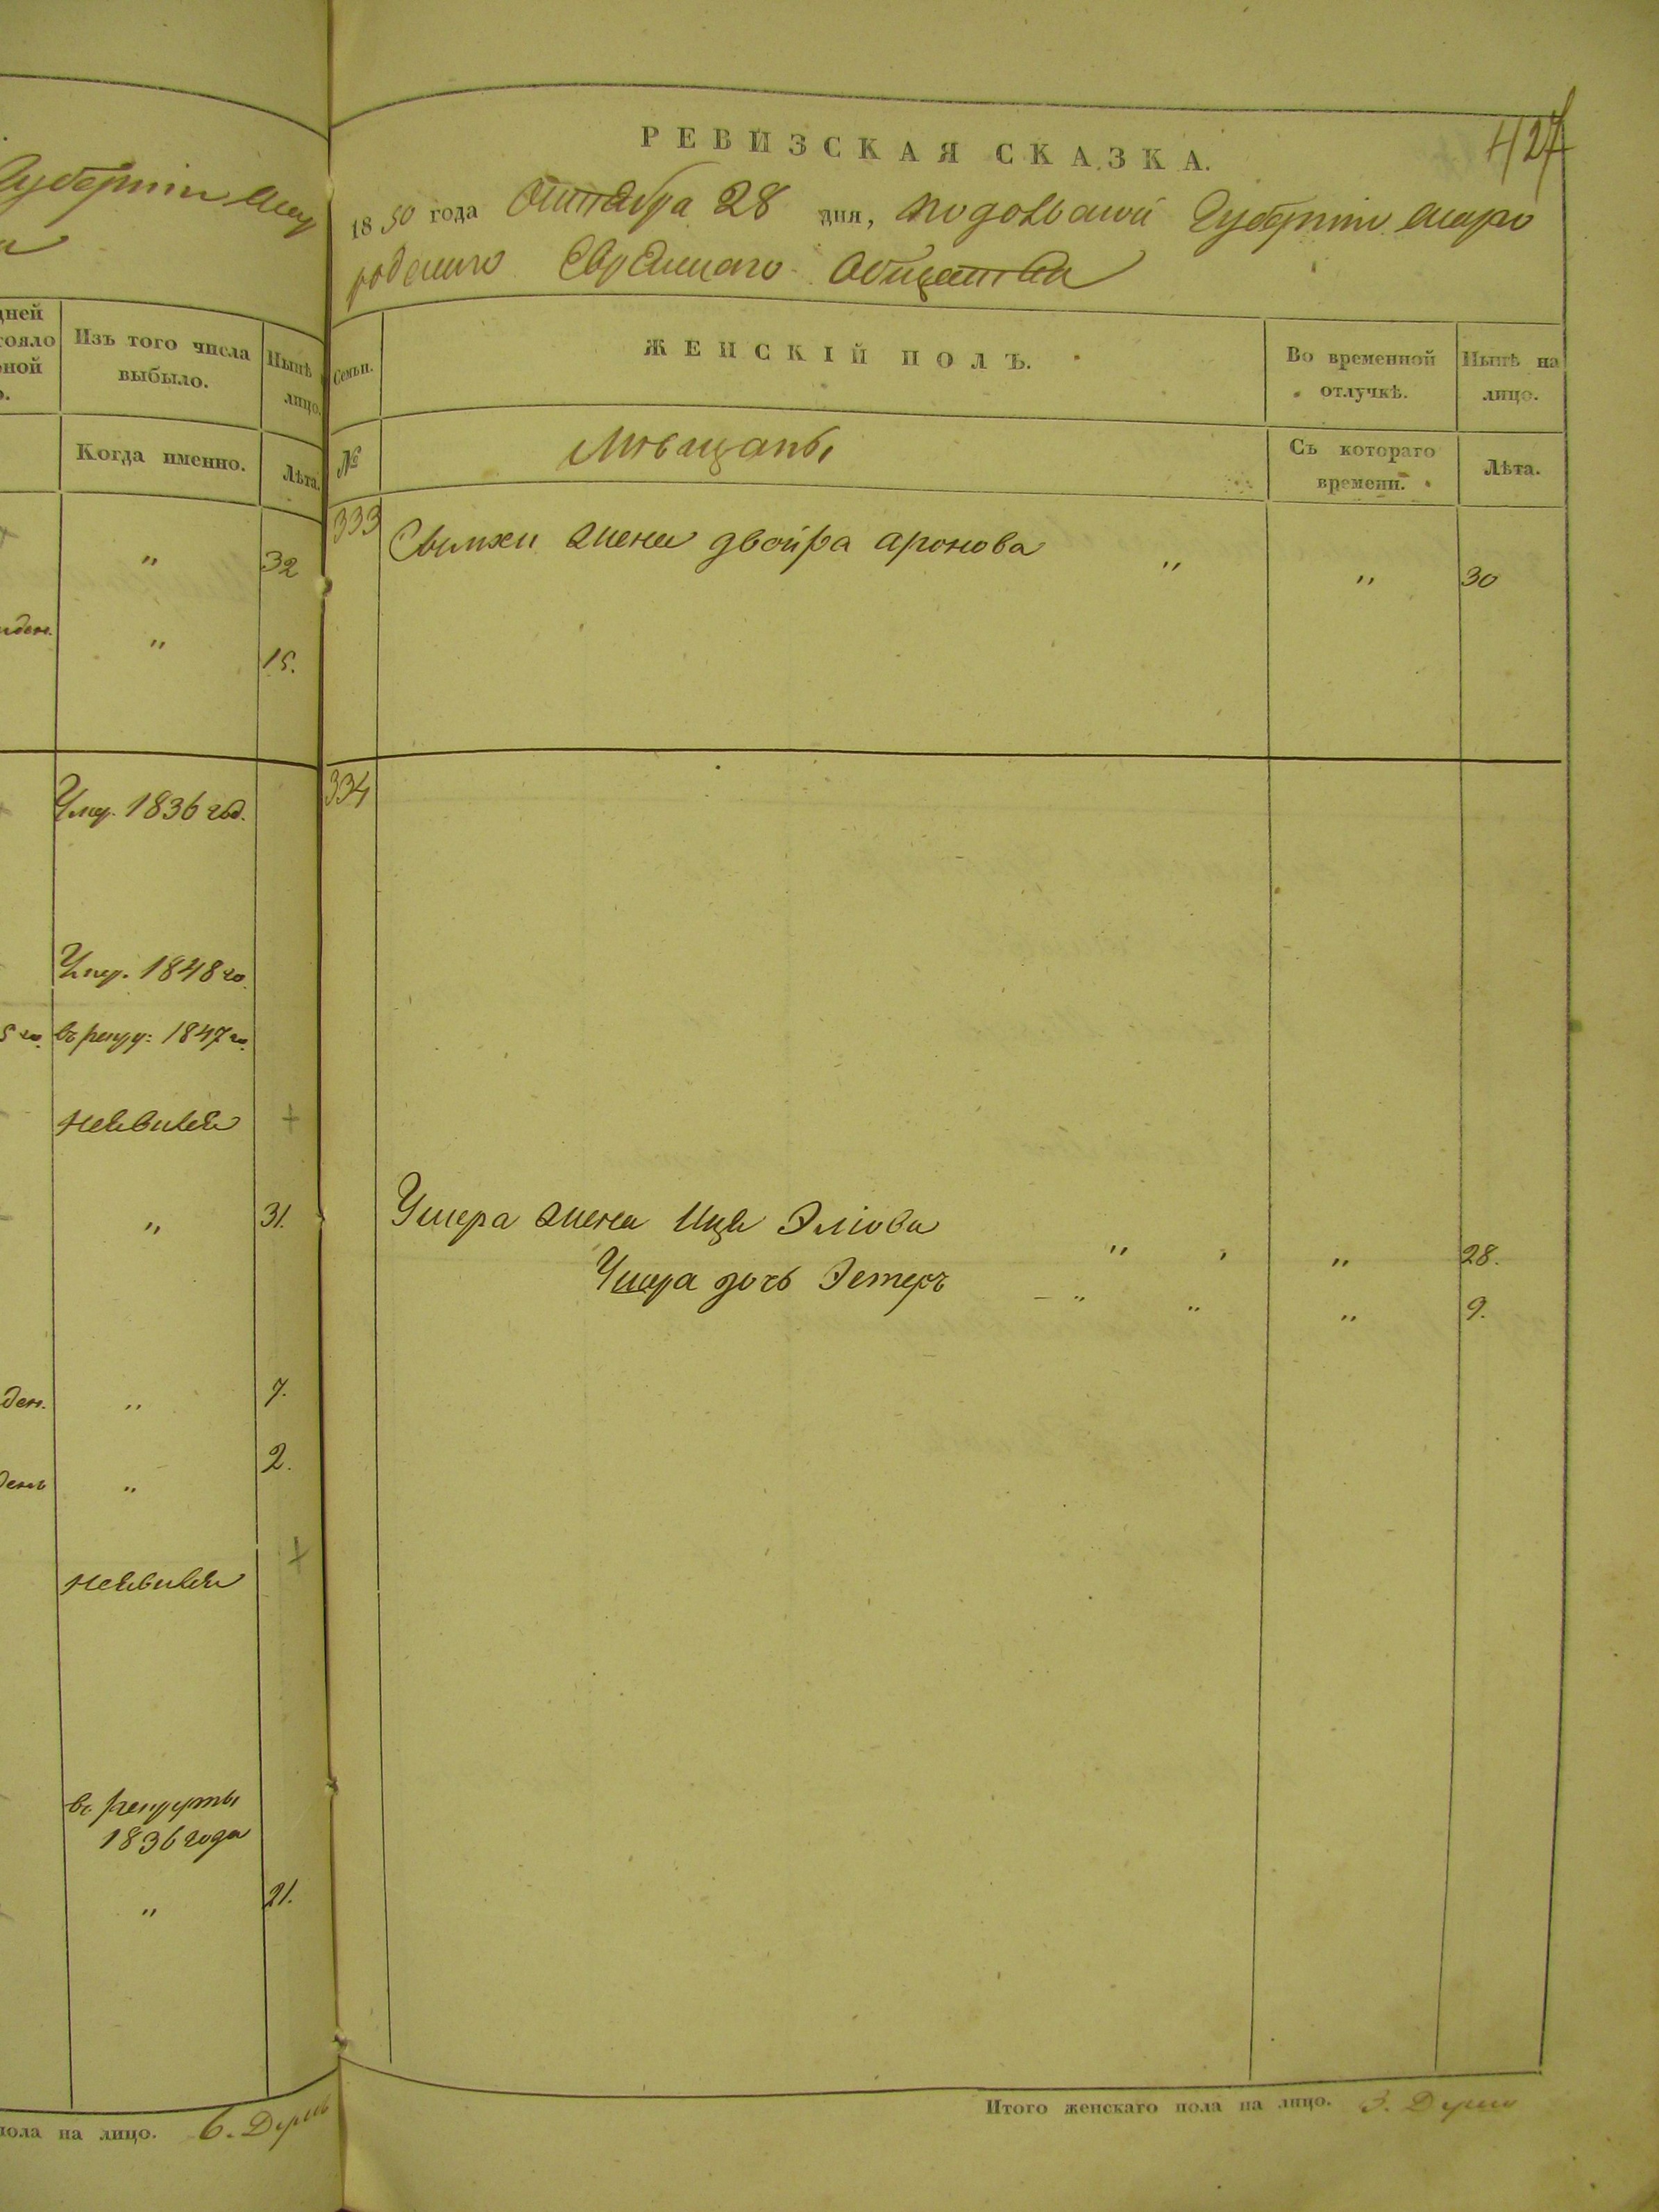 Губерніи Шар
дней
тояло
ьной
Изъ того числа
выбыло.
Нынѣ
лицо.
Когда именно.
Лѣта.
"
32
"
15.
Умер. 1836 год.
Умер. 1848 го
въ рекру: 1847 го.
неявился
"
31.
ден.
"
7.
день
"
2.
неявился
въ рекруты
1836 года
"
21.
пола на лицо. 6. Душъ
427
РЕВИЗСКАЯ СКАЗКА.
1850 года Октября 28 дня, Подольской Губерніи Шаро
родского Еврейскаго Общества
Семьи.
ЖЕНСКІЙ ПОЛЪ.
Во временной
отлучкѣ.
Нынѣ на
лицо.
№
Мѣщаны
Съ котораго
времени.
Лѣта.
333
жена двойра аронова " " 30
334
Ушера жена Эліова " " 28.
Ушера дочь Эстеръ " " " 9.
Итого женскаго пола на лицо. 3. Души